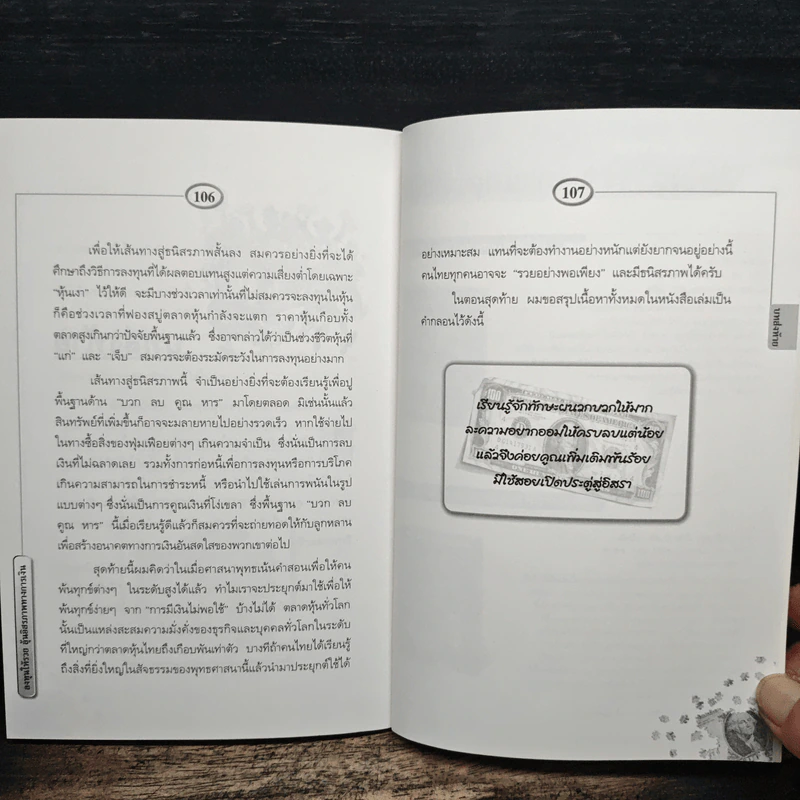 106
เพื่อให้เส้นทางสู่ธนิสรภาพสั้นลง สมควรอย่างยิ่งที่จะได้
ศึกษาถึงวิธีการลงทุนที่ได้ผลตอบแทนสูงแต่ความเสี่ยงต่ำโดยเฉพาะ
"หุ้นเงา" ไว้ให้ดี จะมีบางช่วงเวลาเท่านั้นที่ไม่สมควรจะลงทุนในหุ้น
ก็คือช่วงเวลาที่ฟองสบู่ตลาดหุ้นกำลังจะแตก ราคาหุ้นเกือบทั้ง
ตลาดสูงเกินกว่าปัจจัยพื้นฐานแล้ว ซึ่งอาจกล่าวได้ว่าเป็นช่วงชีวิตหุ้นที่
"แก่" และ "เจ็บ" สมควรจะต้องระมัดระวังในการลงทุนอย่างมาก
เส้นทางสู่ธนิสรภาพนี้ จำเป็นอย่างยิ่งที่จะต้องเรียนรู้เพื่อปู
พื้นฐานด้าน "บวก ลบ คูณ หาร" มาโดยตลอด มิเช่นนั้นแล้ว
สินทรัพย์ที่เพิ่มขึ้นก็อาจจะมลายหายไปอย่างรวดเร็ว หากใช้จ่ายไป
ในทางซื้อสิ่งของฟุ่มเฟือยต่างๆ เกินความจำเป็น ซึ่งนั่นเป็นการลบ
เงินที่ไม่ฉลาดเลย รวมทั้งการก่อหนี้เพื่อการลงทุนหรือการบริโภค
เกินความสามารถในการชำระหนี้ หรือนำไปใช้เล่นการพนันในรูป
แบบต่างๆ ซึ่งนั่นเป็นการคูณเงินที่โง่เขลา ซึ่งพื้นฐาน "บวก ลบ
คูณ หาร" นี้เมื่อเรียนรู้ดีแล้วก็สมควรที่จะถ่ายทอดให้กับลูกหลาน
เพื่อสร้างอนาคตทางการเงินอันสดใสของพวกเขาต่อไป
สุดท้ายนี้ผมคิดว่าในเมื่อศาสนาพุทธเน้นคำสอนเพื่อให้คน
พ้นทุกข์ต่างๆ ในระดับสูงได้แล้ว ทำไมเราจะประยุกต์มาใช้เพื่อให้
พ้นทุกข์ง่ายๆ จาก "การมีเงินไม่พอใช้" บ้างไม่ได้ ตลาดหุ้นทั่วโลก
นั้นเป็นแหล่งสะสมความมั่งคั่งของธุรกิจและบุคคลทั่วโลกในระดับ
ที่ใหญ่กว่าตลาดหุ้นไทยถึงเกือบพันเท่าตัว บางทีถ้าคนไทยได้เรียนรู้
ถึงสิ่งที่ยิ่งใหญ่ในสัจธรรมของพุทธศาสนานี้แล้วนำมาประยุกต์ใช้ได้
ลงทุนให้รวย ลุ้นอิสรภาพทางการเงิน
107
อย่างเหมาะสม แทนที่จะต้องทำงานอย่างหนักแต่ยังยากจนอยู่อย่างนี้
คนไทยทุกคนอาจจะ "รวยอย่างพอเพียง" และมีธนิสรภาพได้ครับ
ในตอนสุดท้าย ผมขอสรุปเนื้อหาทั้งหมดในหนังสือเล่มเป็น
คำกลอนไว้ดังนี้
เรียนรู้จักทักษะผนวกบวกให้มาก
ละความอยากออมให้ครบลบแต่น้อย
แล้วจึงค่อยคูณเพิ่มเติมพันร้อย
มีใช้สอยเปิดประตูสู่อิสรา
บทส่งท้าย